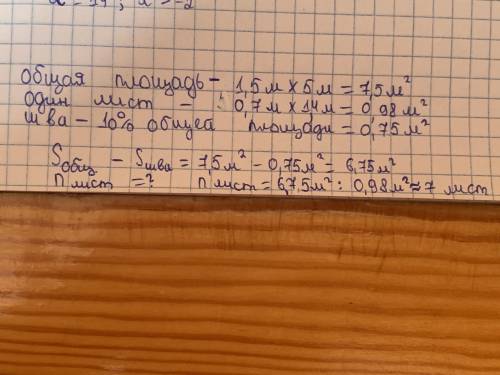 общая площадь – 1,5 м × 5 м = 7,5 м²
один лист – 0,7 м × 1,4 м = 0,98 м²
шва – 10% общей площади = 0,75 м²
Sобщ – Sшва = 7,5 м² – 0,75 м² = 6,75 м²
n лист = ? n лист = 6,75 м² : 0,98 м² ≈ 7 лист